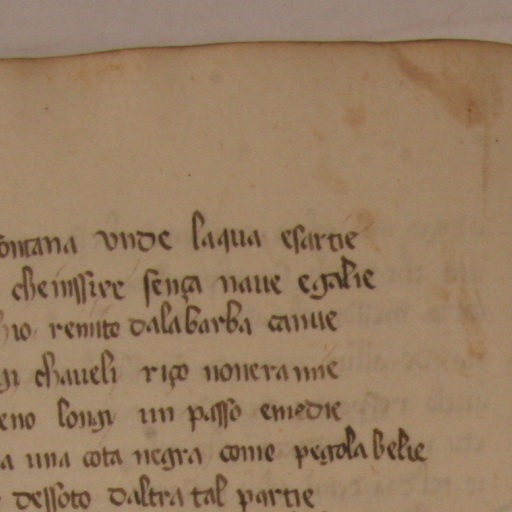 ontana unde laqua esartie
che inssire sença naue egalie
hio remito dala barba canue
gi chaueli riço noneranne
eno longi un passo emedie
a una cota negra come pegola belie
dessoto daltra tal partie